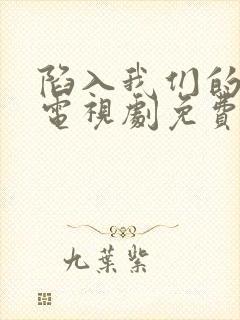 陷入我们的
電視劇免費
九葉紫